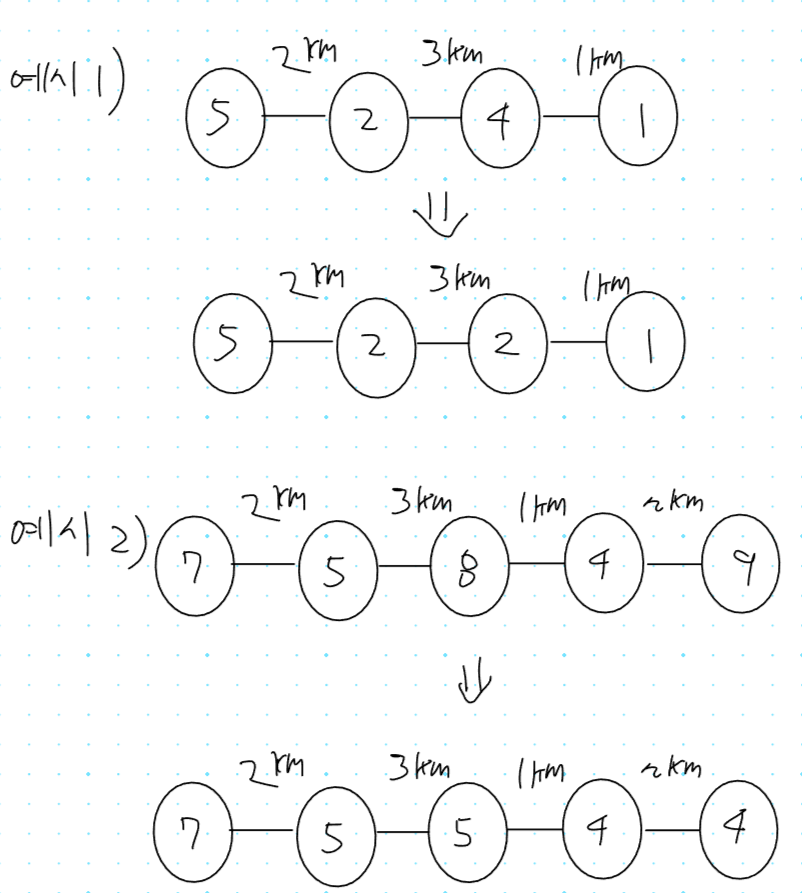 예시 1) 2km 3km 1km
5 2 4 1
⇓
2km 3km 1km
5 2 2 1
예시 2) 2km 3km 1km 2km
7 5 8 4 9
⇓
2km 3km 1km 2km
7 5 5 4 4